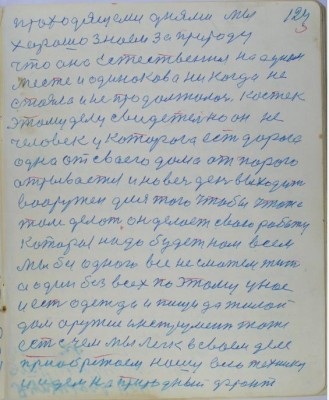 проходящеми днями мы 124
хорошо знаем за природу
что она естествення на одном
месте и одинакова никогда не
стояла и не продолжалась
этому делу свидетел но он не
человек у которога ест дорога
одна от своего дома от порога
отрывается и новеч ден выходит
вооружен для того чтобы тоже
тоже делат он делает свою работу
которая надо будет нам всем
мы бы одного все не сможем жит
а один без всех поэтому у нас
и ест одежда и пища да жилой
дом оружие инструмент тоже
ест с чем мы легк в своем деле
приобретаем нашу всю технику
и идем на природный фронт